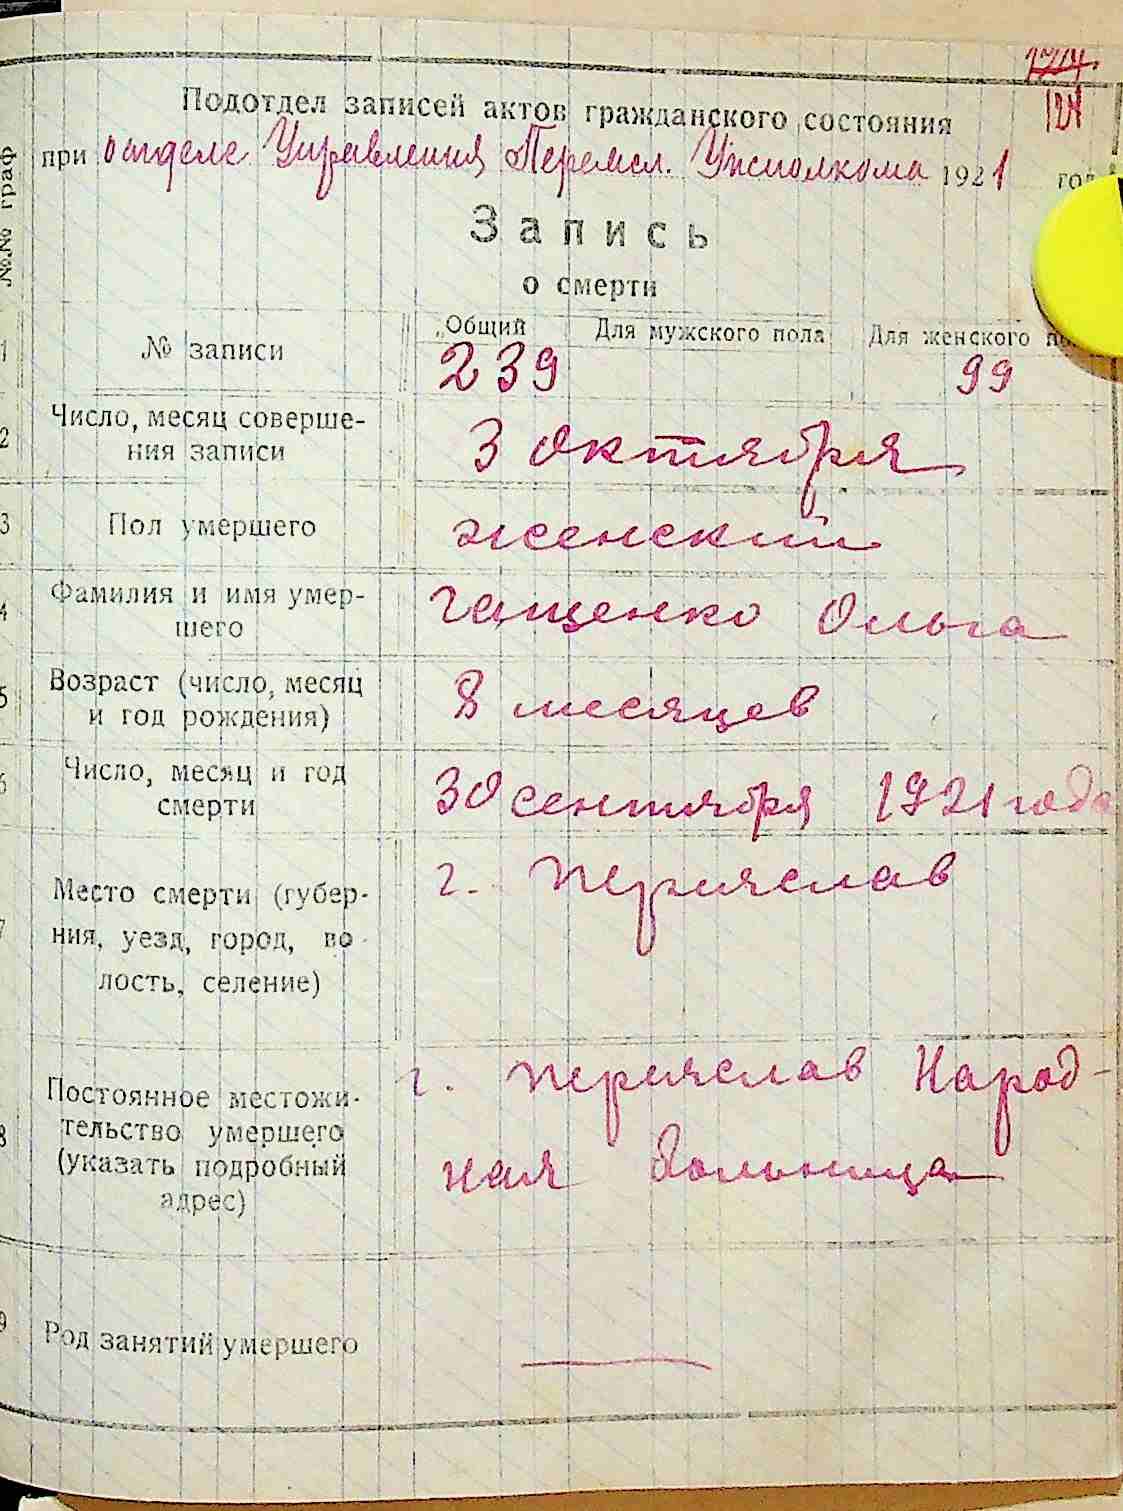 174
124
Подотдел записей актов гражданского состояния
при отделе Управления Перемсл. Уисполкома 1921 год
Запись
о смерти
№№ граф
1 № записи
Общий Для мужского пола Для женского
239 99
2 Число, месяц соверше-
ния записи
3 октября
3 Пол умершего
женский
4 Фамилия и имя умер-
шего
Гащенко Ольга
5 Возраст (число, месяц
и год рождения)
8 месяцев
6 Число, месяц и год
смерти
30 сентября 1921 года
7 Место смерти (губер-
ния, уезд, город, во-
лость, селение)
г. Переяслав
8 Постоянное местожи-
тельство умершего
(указать подробный
адрес)
г. Переяслав Народ-
ная больница
9 Род занятий умершего